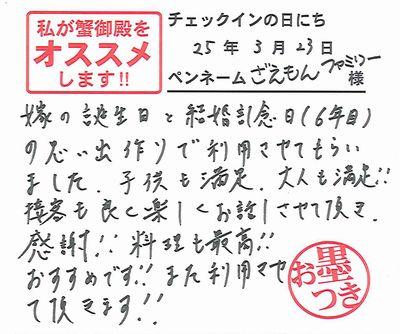 私が蟹御殿を
オススメ
します!!
チェックインの日にち
25年3月23日
ペンネーム ざえもんファミリー様
嫁の誕生日と結婚記念日(6年目)
の思い出作りで利用させてもらい
ました。子供も満足、大人も満足!!
接客も良く楽しくお話しさせて頂き、
感謝!! 料理も最高!!
おすすめです!! また利用させ
て頂きます!!
お墨
つき